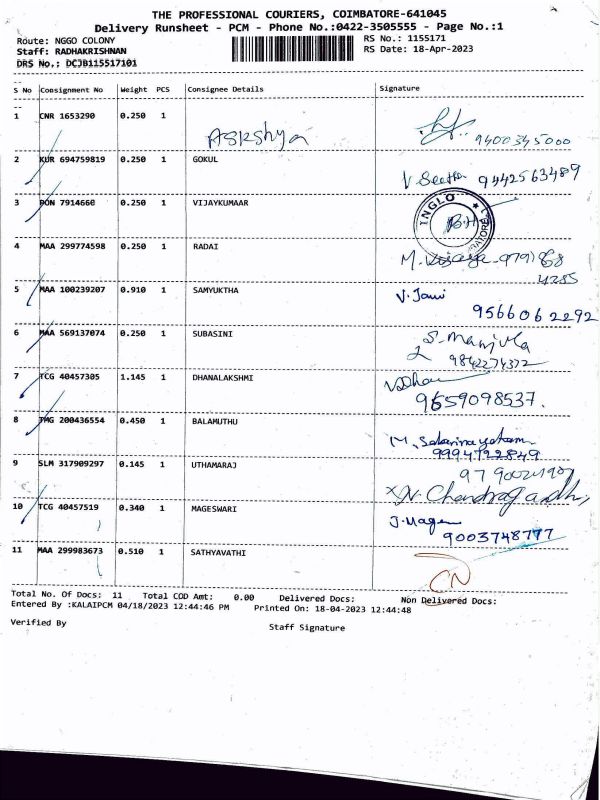 THE PROFESSIONAL COURIERS, COIMBATORE-641045
Delivery Runsheet - PCM - Phone No.:0422-3505555 - Page No.:1
Route: NGGO COLONY RS No.: 1155171
Staff: RADHAKRISHNAN RS Date: 18-Apr-2023
DRS No.; DCJB115517101
S No Consignment No Weight PCS Consignee Details Signature
1 CNR 1653290 0.250 1
9400345000
2 KUR 694759819 0.250 1 GOKUL
V. Seetha 9442563489
3 PON 7914660 0.250 1 VIJAYKUMAAR
INGLO
4 MAA 299774598 0.250 1 RADAI
M. 979168
4285
5 MAA 100239207 0.910 1 SAMYUKTHA V. Jami
9566062292
6 MAA 569137074 0.250 1 SUBASINI S. Manjula
9842274372
7 TCG 40457305 1.145 1 DHANALAKSHMI
9659098537.
8 TMG 200436554 0.450 1 BALAMUTHU
9994792849
9 SLM 317909297 0.145 1 UTHAMARAJ
N. Chandragandhi
10 TCG 40457519 0.340 1 MAGESWARI J. Mages
9003748777
11 MAA 299983673 0.510 1 SATHYAVATHI
CN
Total No. Of Docs: 11 Total COD Amt: 0.00 Delivered Docs: Non Delivered Docs:
Entered By :KALAIPCM 04/18/2023 12:44:46 PM Printed On: 18-04-2023 12:44:48
Verified By Staff Signature